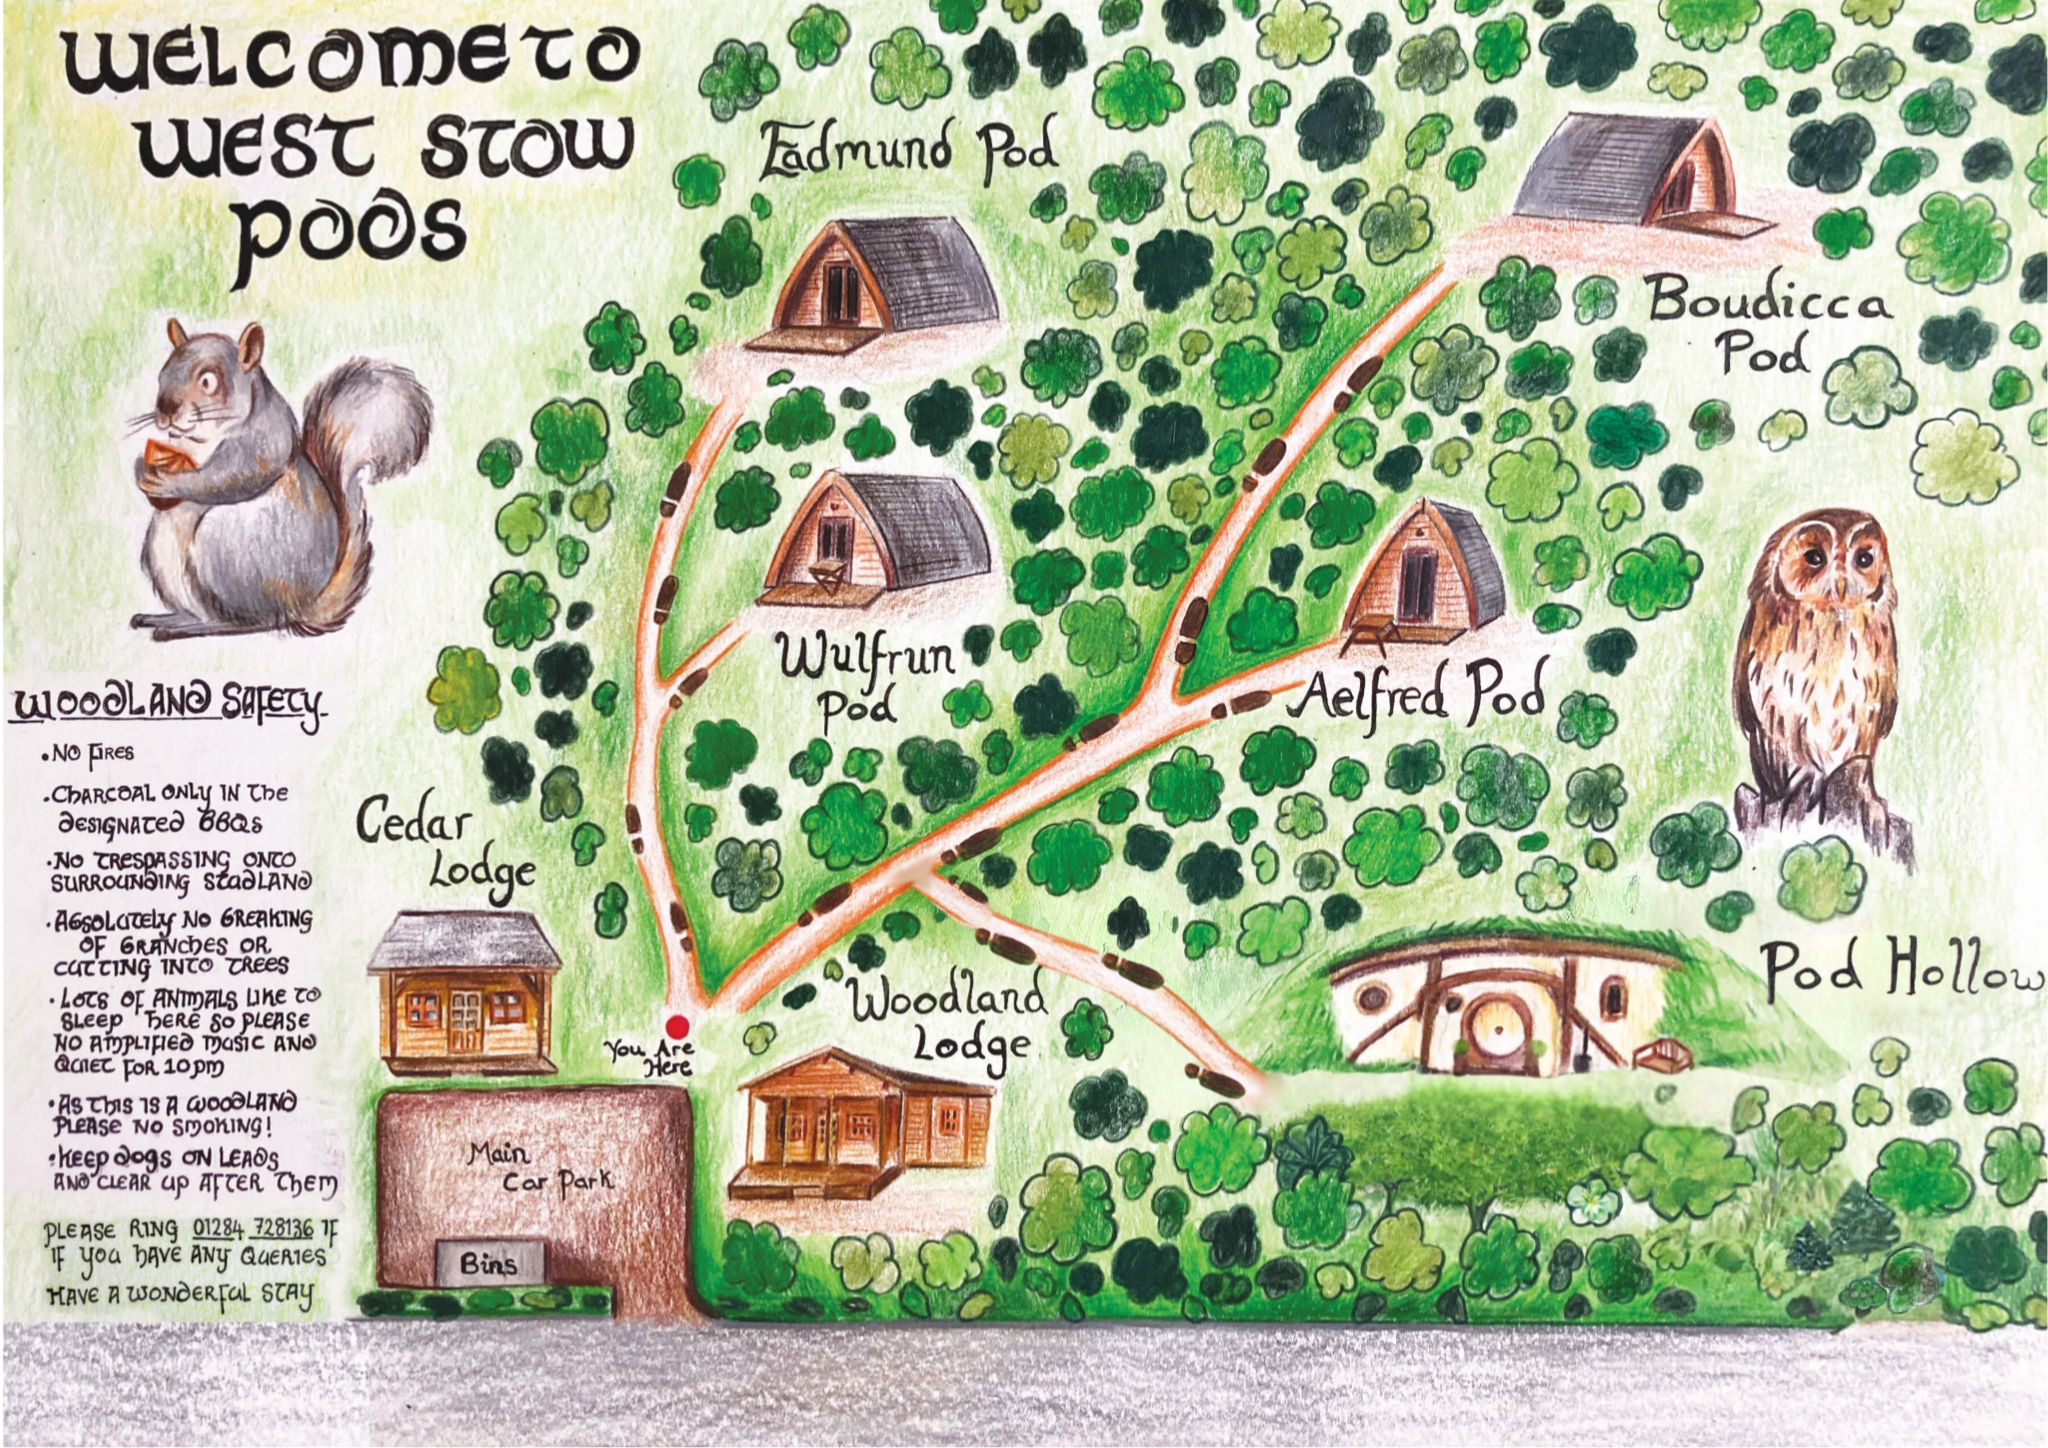 WELCOME TO
WEST STOW
PODS
Eadmund Pod
Boudicca
Pod
Wulfrun
Pod
Aelfred Pod
WOODLAND SAFETY
• NO FIRES
• CHARCOAL ONLY IN THE
DESIGNATED BBQS
• NO TRESPASSING ONTO
SURROUNDING STUDLAND
• ABSOLUTELY NO BREAKING
OF BRANCHES OR
CUTTING INTO TREES
• LOTS OF ANIMALS LIKE TO
SLEEP HERE SO PLEASE
NO AMPLIFIED MUSIC AND
QUIET FOR 10PM
• AS THIS IS A WOODLAND
PLEASE NO SMOKING!
• KEEP DOGS ON LEADS
AND CLEAR UP AFTER THEM
PLEASE RING 01284 728136 IF
IF YOU HAVE ANY QUERIES
HAVE A WONDERFUL STAY
Cedar
Lodge
Pod Hollow
Woodland
Lodge
You Are
Here
Main
Car Park
Bins